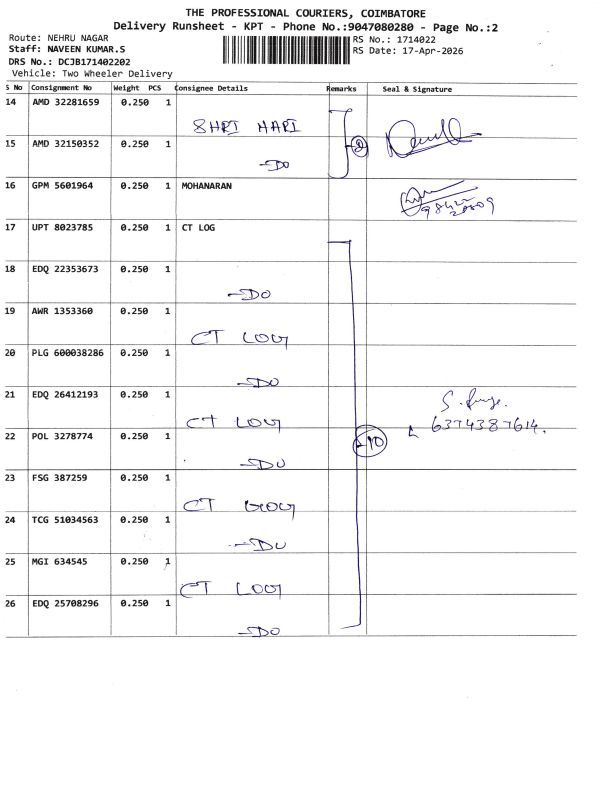 THE PROFESSIONAL COURIERS, COIMBATORE
Delivery Runsheet - KPT - Phone No.:9047080280 - Page No.:2
Route: NEHRU NAGAR
RS No.: 1714022
Staff: NAVEEN KUMAR.S
RS Date: 17-Apr-2026
DRS No.: DCJB171402202
Vehicle: Two Wheeler Delivery
S No Consignment No Weight PCS Consignee Details Remarks Seal & Signature
14 AMD 32281659 0.250 1
SHRI HARI
15 AMD 32150352 0.250 1
-DO
16 GPM 5601964 0.250 1 MOHANARAN
17 UPT 8023785 0.250 1 CT LOG
18 EDQ 22353673 0.250 1
-DO
19 AWR 1353360 0.250 1
CT LOG
20 PLG 600038286 0.250 1
-DO
21 EDQ 26412193 0.250 1
6374387614.
CT LOG
22 POL 3278774 0.250 1
10
-DO
23 FSG 387259 0.250 1
CT
24 TCG 51034563 0.250 1
-DO
25 MGI 634545 0.250 1
CT LOG
26 EDQ 25708296 0.250 1
-DO